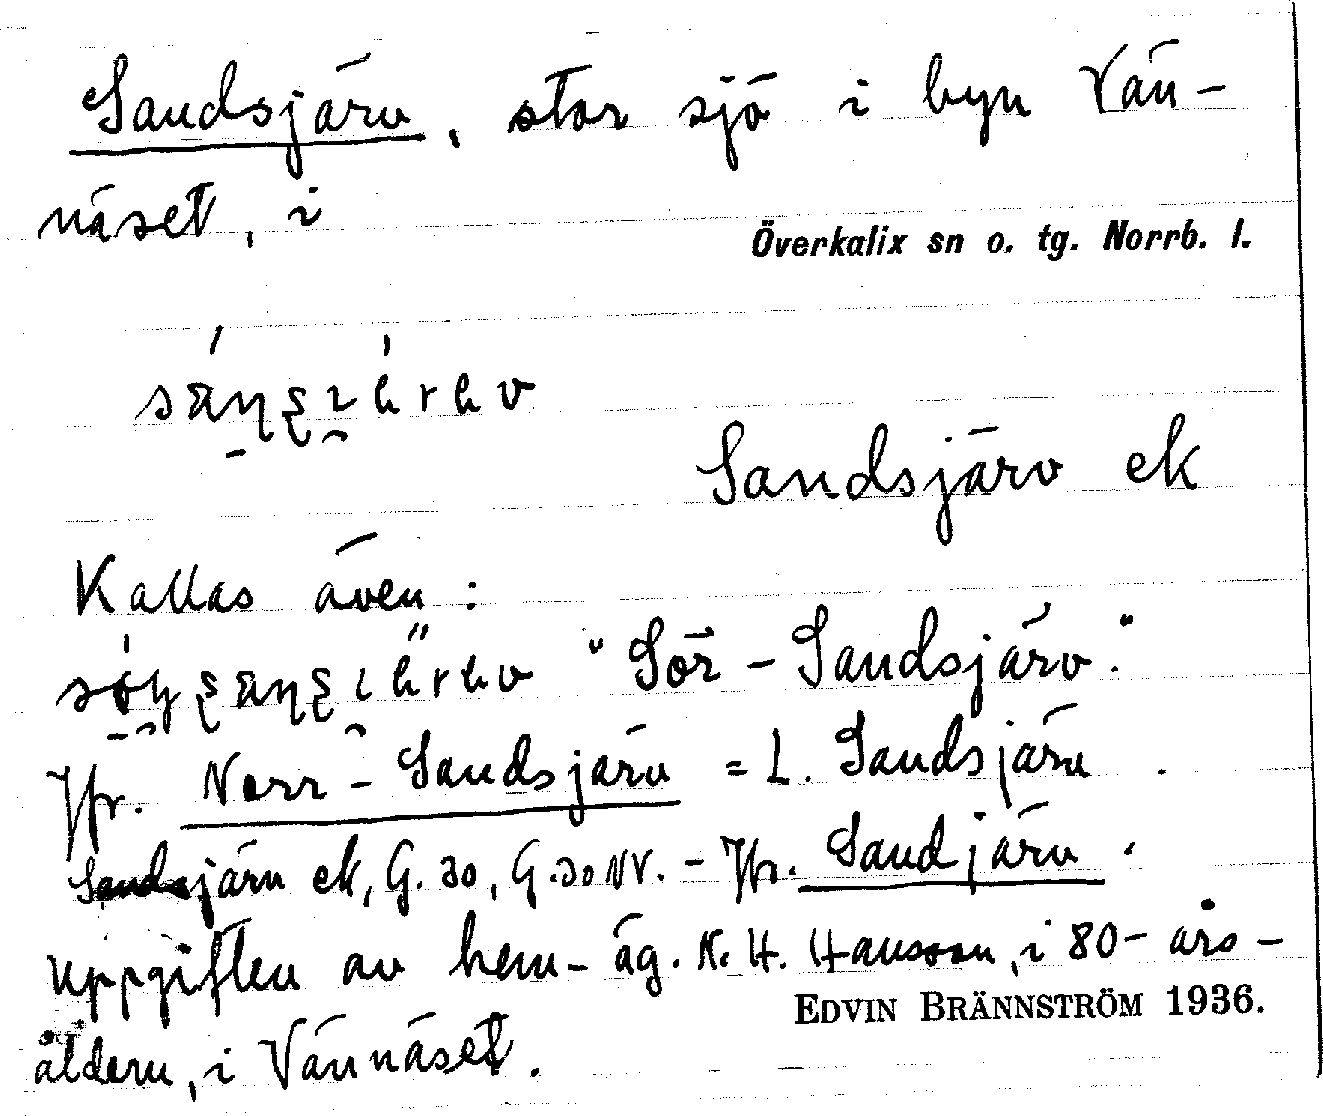 Sandsjärv, stor sjö i byn Vän-
näset, i
Överkalix sn o. tg. Norrb. l.
Sandsjärv ek
Kallas även:
"Sör-Sandsjärv."
Jfr. Norr-Sandsjärv = L. Sandsjärv
Sandsjärv ek, G. 30, G. 30 NV. - Jfr. Sandjärv.
Uppgiften av hem-äg. N. H. Hansson, i 80-års-
EDVIN BRÄNNSTRÖM 1936.
åldern, i Vännäset.